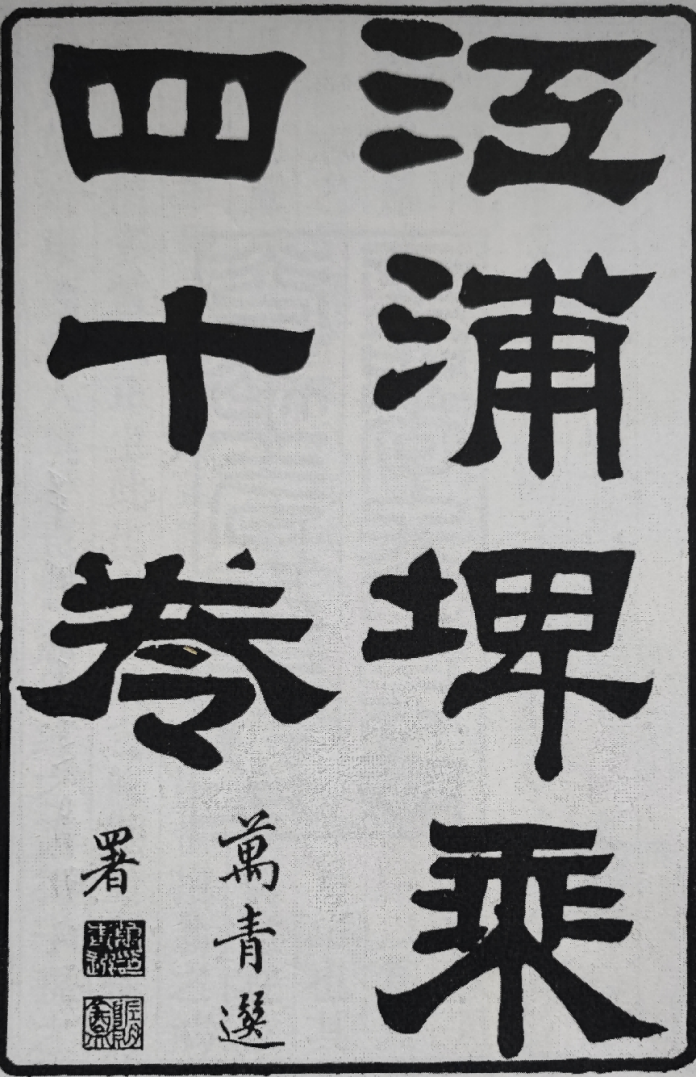 江浦埤乘
四十卷
萬青選
署